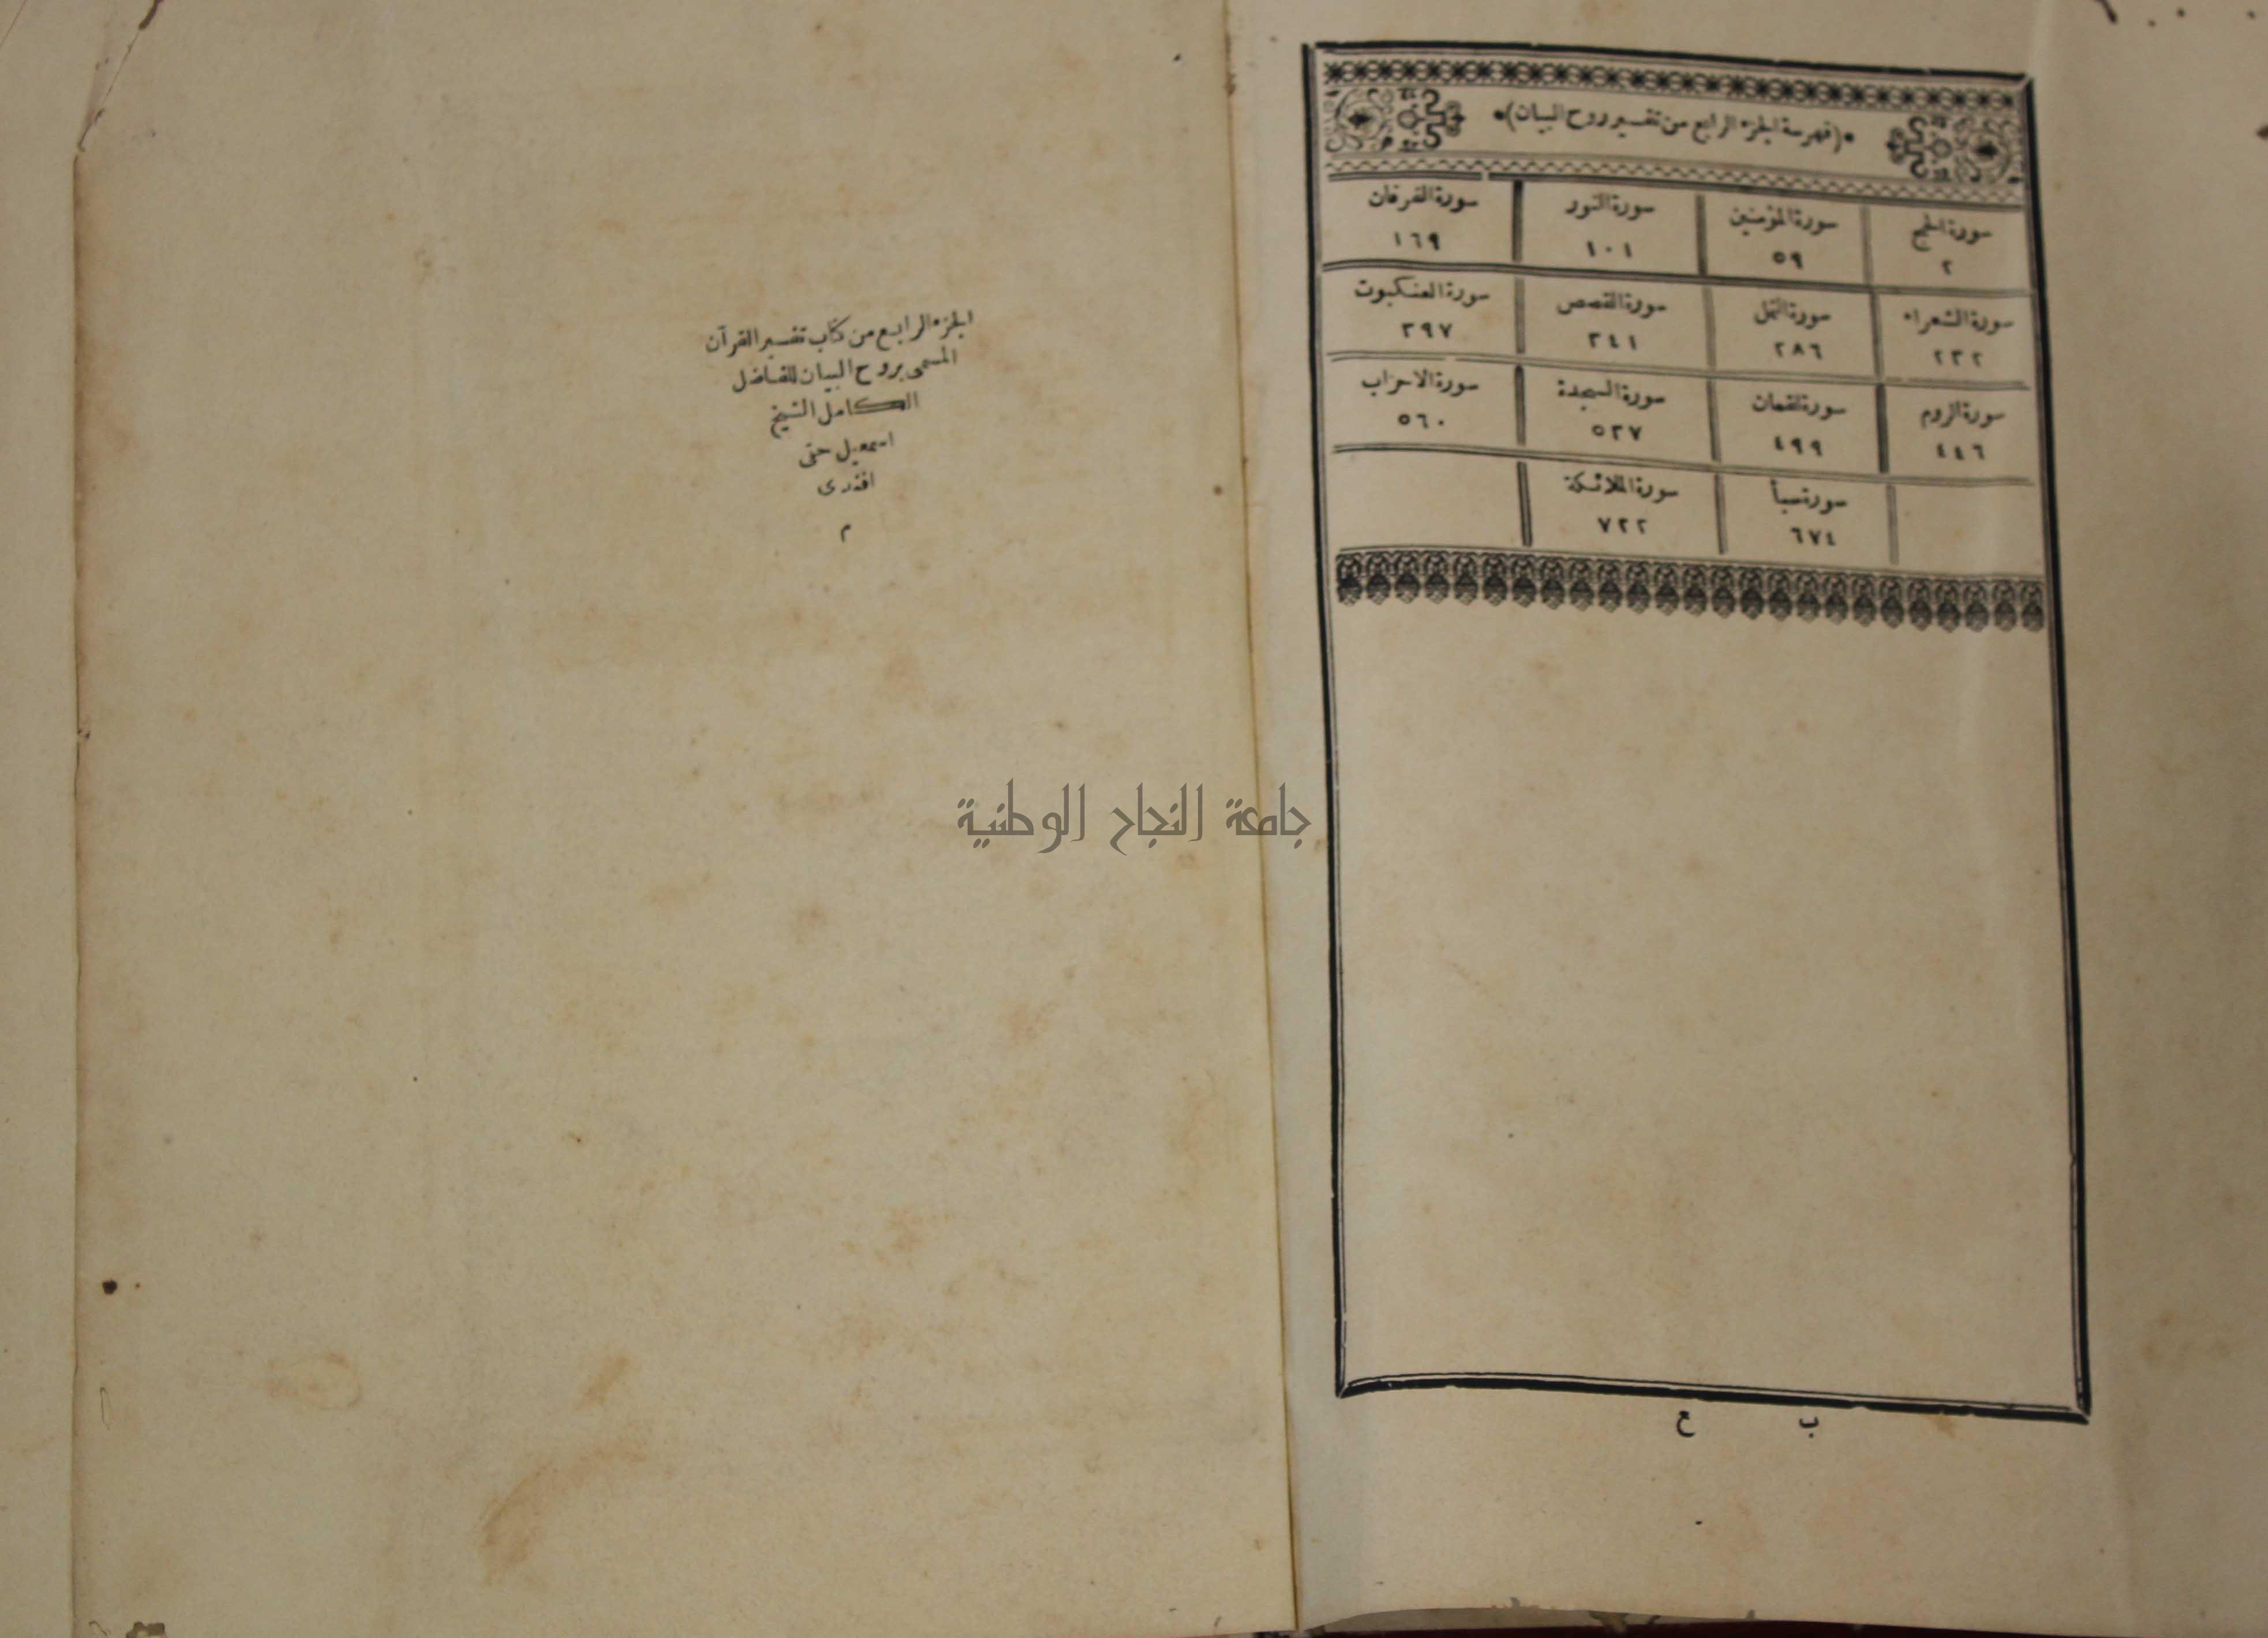 (فهرسة الجزء الرابع من تفسير روح البيان)
سورة الحج سورة المؤمنين سورة النور سورة الفرقان
٢ ٥٩ ١٠١ ١٦٩
سورة الشعراء سورة النمل سورة القصص سورة العنكبوت
٢٣٢ ٢٨٦ ٣٤١ ٣٩٧
سورة الروم سورة لقمان سورة السجدة سورة الاحزاب
٤٤٦ ٤٩٩ ٥٢٧ ٥٦٠
سورة سبأ سورة الملائكة
٦٧٤ ٧٢٢
ب ع
الجزء الرابع من كتاب تفسير القرآن
المسمى بروح البيان للفاضل
الكامل الشيخ
اسمعيل حقى
افندى
م
جامعة النجاح الوطنية